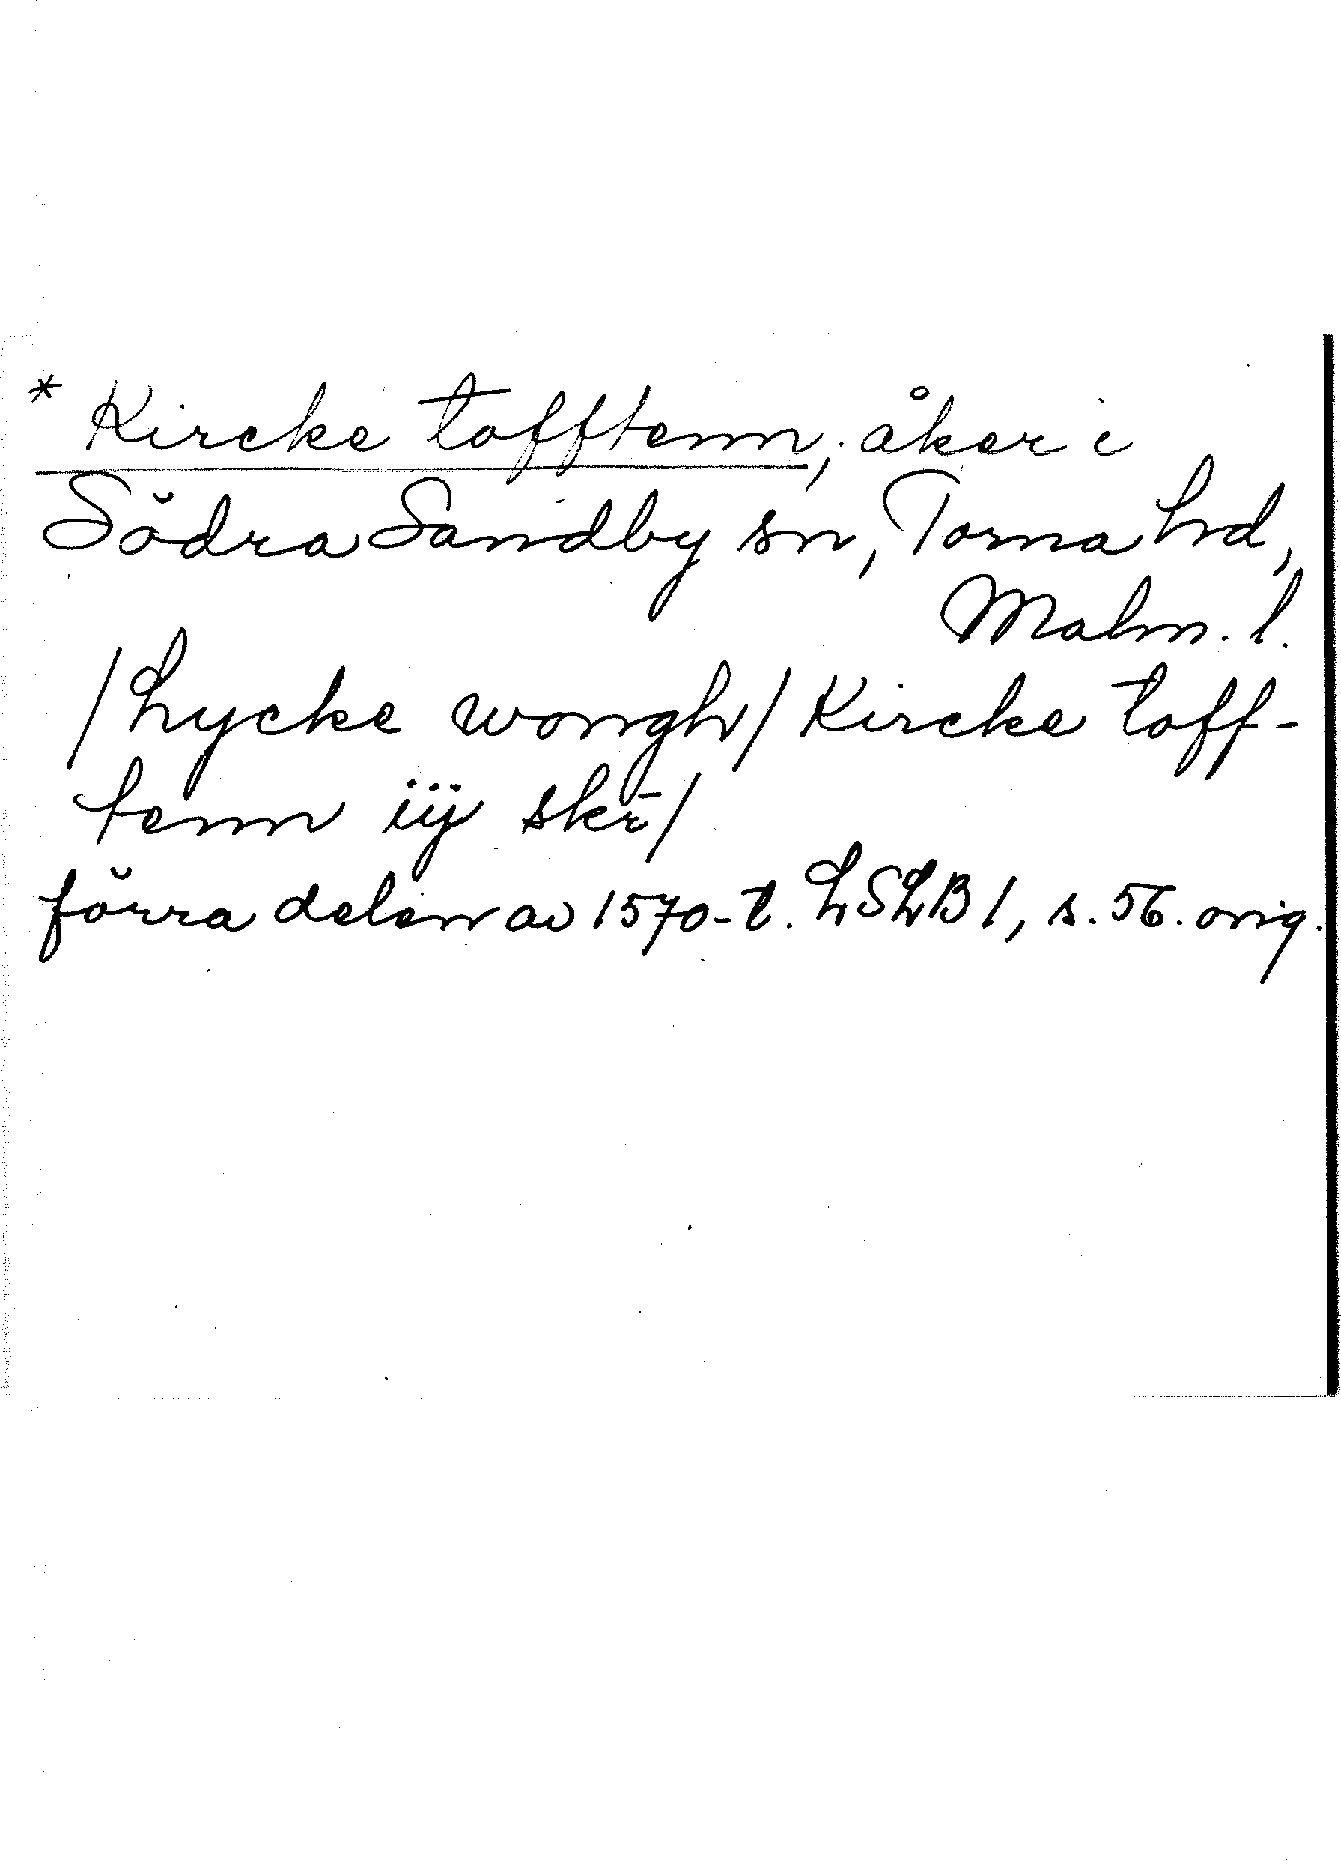 * Kircke tofftenn, åker i
Södra Sandby sn, Torna hd,
Malm. l.
/Lycke wongh/ Kircke toff-
tenn iij skr̄/
förra delen av 1570-t. LSLB 1, s. 56. orig.